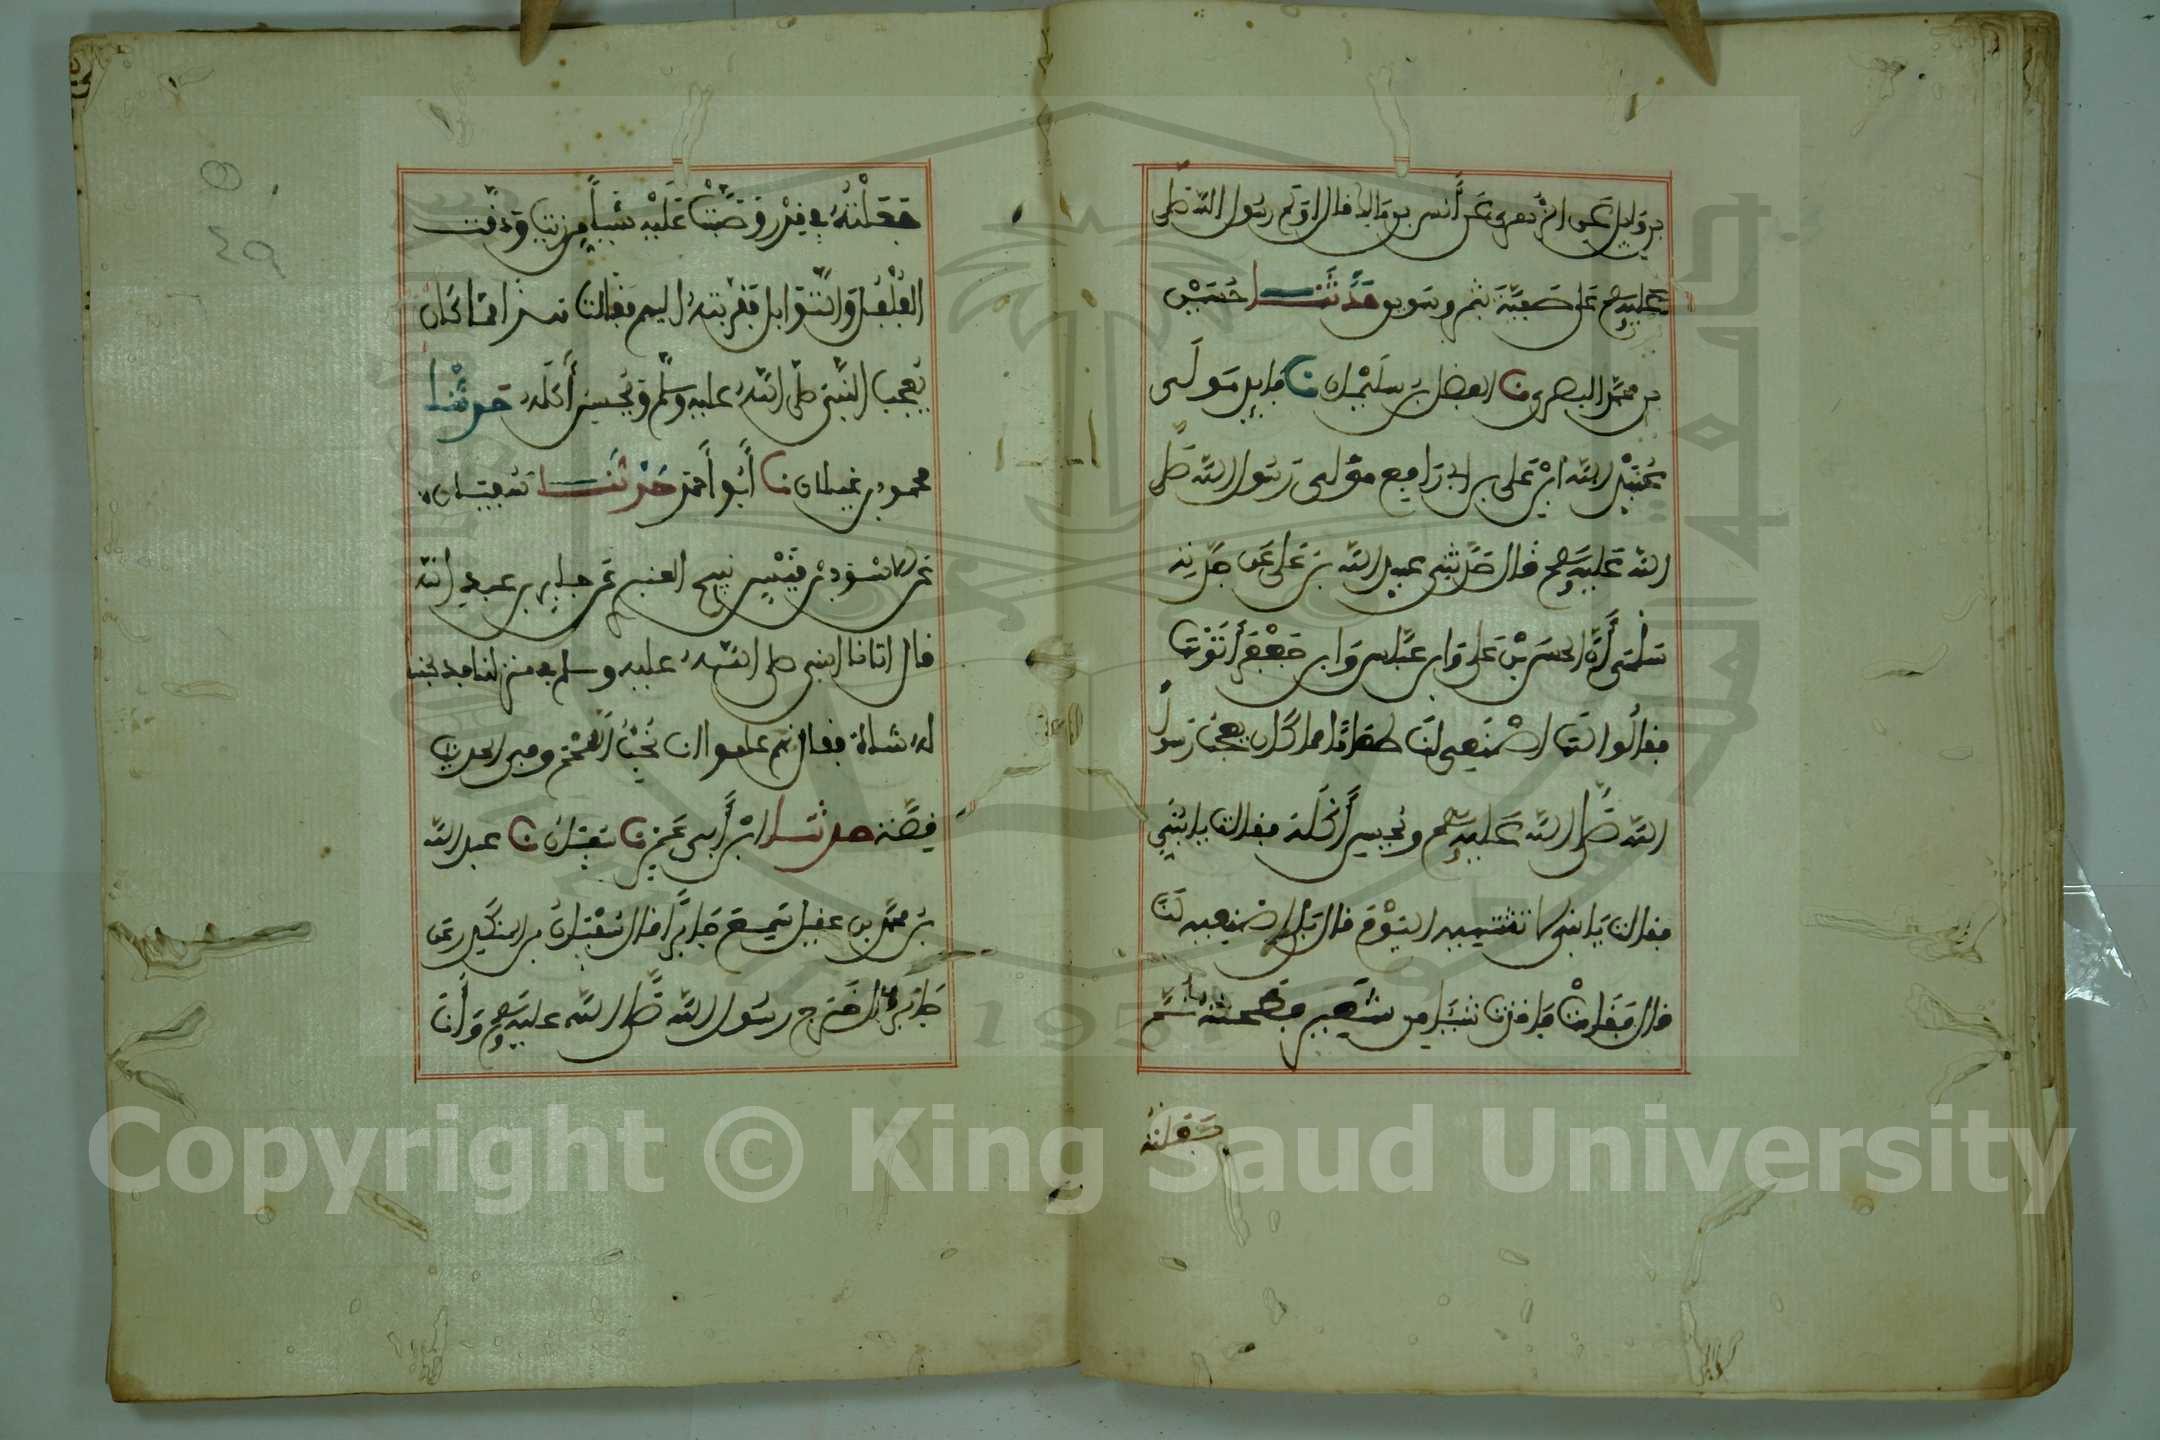 بن وايل عن الزهري عن أنس بن مالك قال اولم رسول الله صلى
عليه وسلم على صفية بثمر وسويق حدثنا حسين
بن محمد البصري نا الفضل بن سليمان نا فايد مولى
عبيد الله ابن علي بن ابي رافع مولى رسول الله صلى
الله عليه وسلم قال حدثني عبيد الله بن علي عن جدته
سلمى أن الحسن بن علي وابن عباس وابن جعفر أتوها
فقالوا لها اصنعي لنا طعاما مما كان يعجب رسول
الله صلى الله عليه وسلم ويحسن أكله فقالت يا بني
فقالت يا بني لا تشتهيه اليوم قال بلى اصنعيه لنا
قال فقامت فاخذت شيئا من شعير فطحنته ثم
جعلته
جعلته في قدر وصبت عليه شيئا من زيت ودقت
الفلفل والتوابل فقربته اليهم فقالت هذا مما كان
يعجب النبي صلى الله عليه وسلم ويحسن أكله حدثنا
محمود بن غيلان نا أبو أحمد حدثنا سفيان
عن الاسود بن قيس نبيح العنزي عن جابر بن عبد الله
قال اتانا النبي صلى الله عليه وسلم في منزلنا فذبحنا
له شاة فقال كانهم علموا انا نحب اللحم وفي الحديث
قصة حدثنا ابن أبي عمر نا سفيان نا عبد الله
بن محمد بن عقيل سمع جابرا قال سفيان بن المنكدر عن
جابر قال خرج رسول الله صلى الله عليه وسلم وأنا
٤٩
Copyright © King Saud University
1957